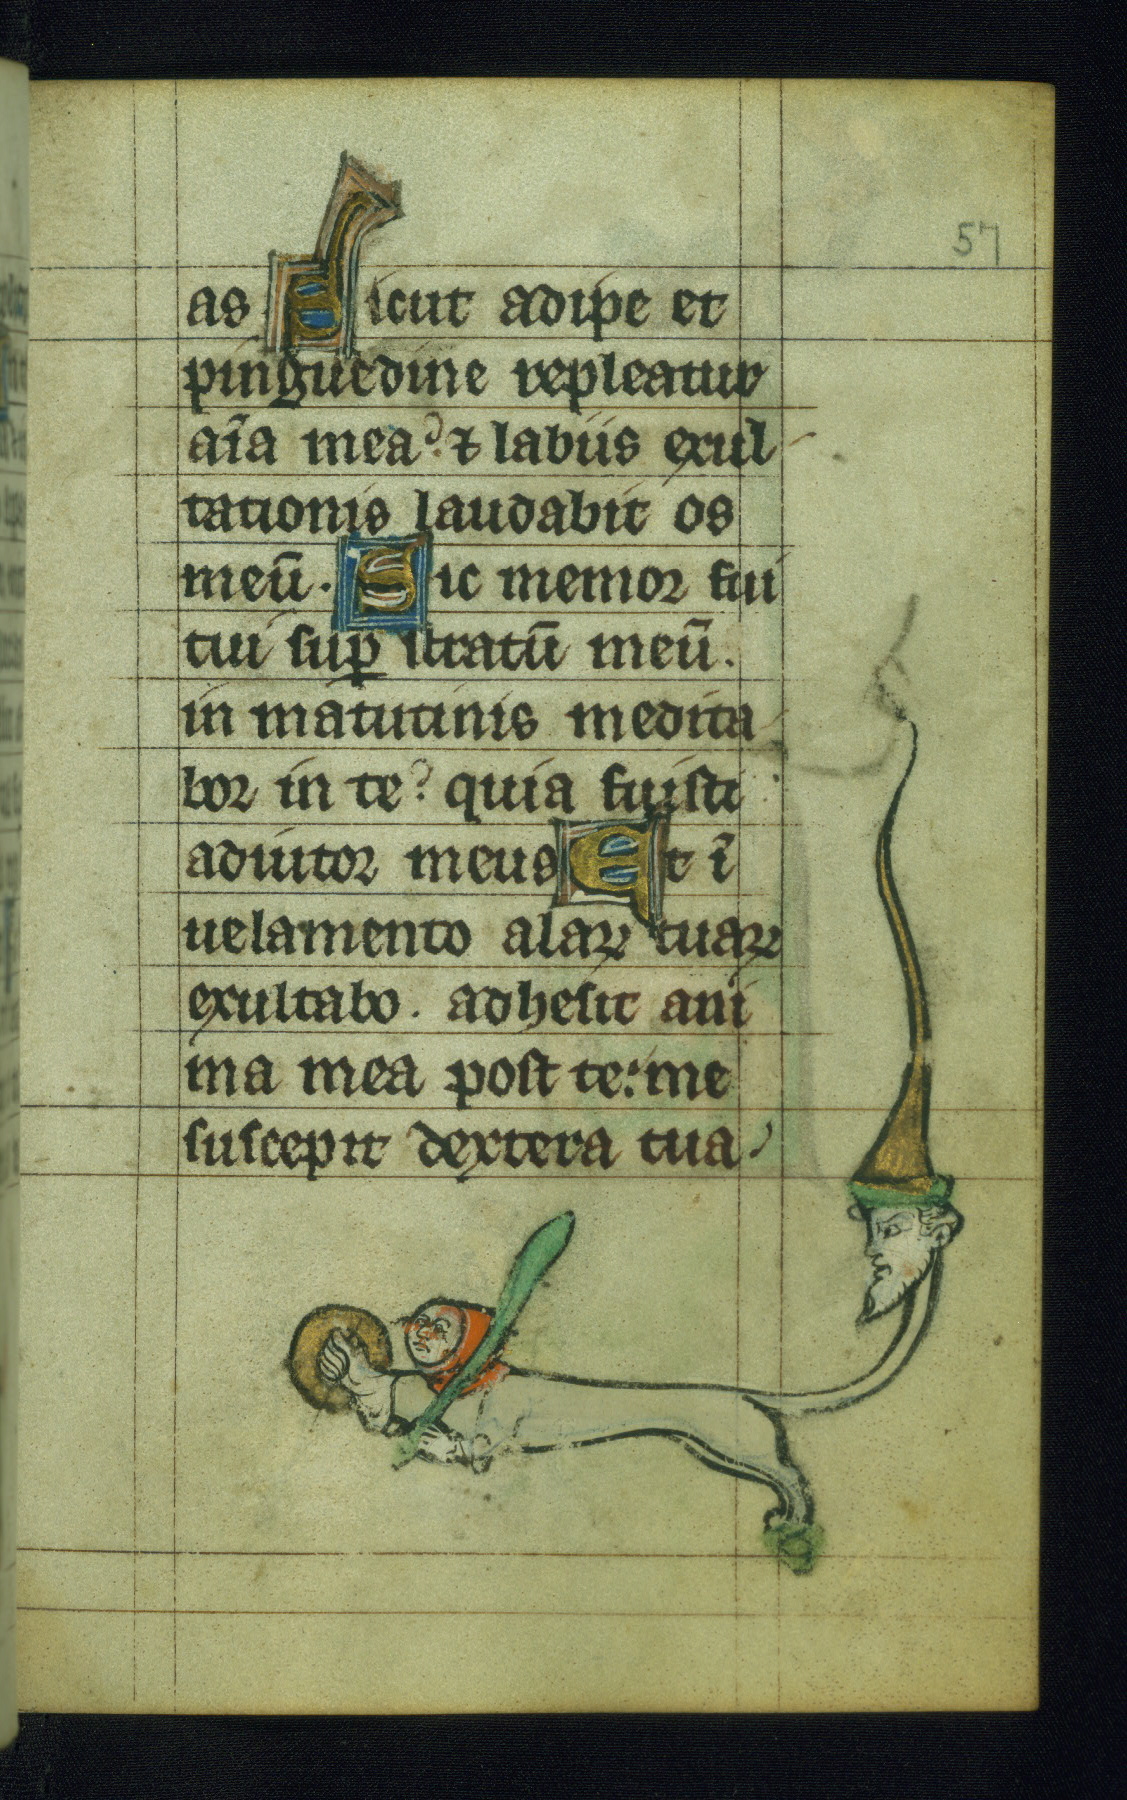 57
as Sicut adipe et
pinguedine repleatur
aı̃a mea ⁊ labiis exul
tationis laudabit os
meū. Sic memor fui
tui sup̲ stratū meū.
in matutinis medita
bor in te? quia fuisti
adiutor meus Et ı̃
uelamento alaꝝ tuaꝝ
exultabo. adhesit ani
ma mea post te: me
suscepit dextera tua